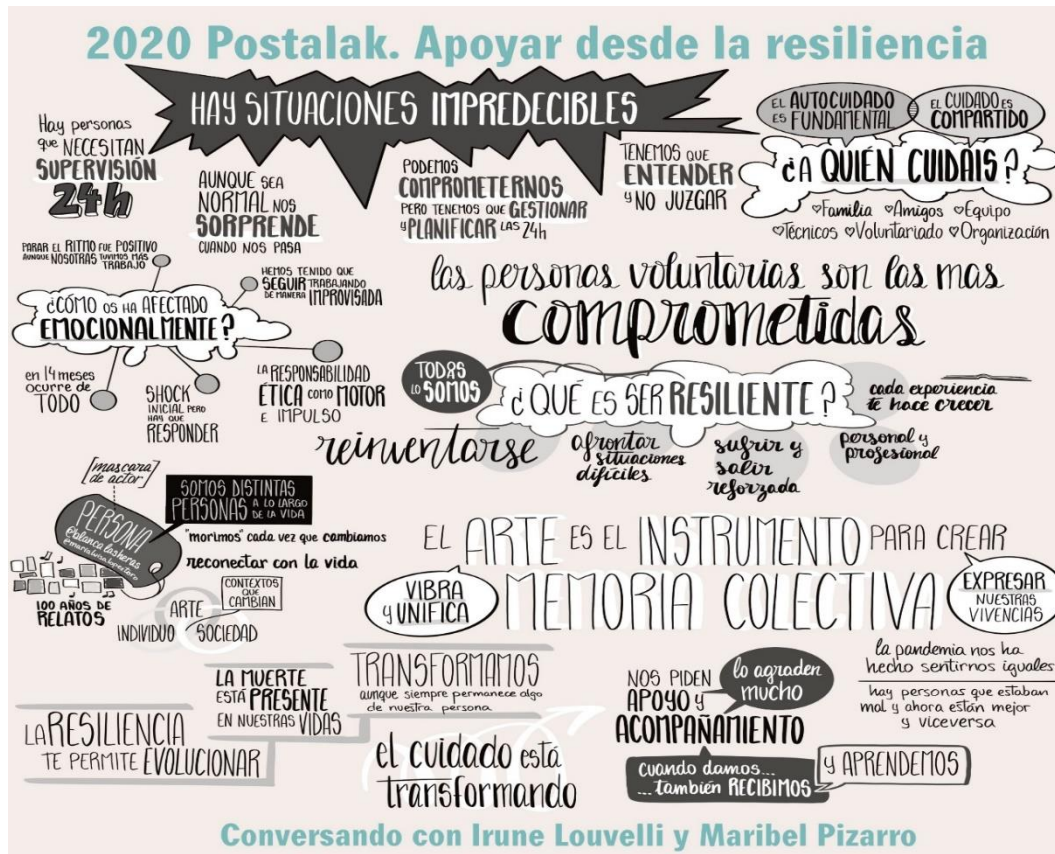 2020 Postalak. Apoyar desde la resiliencia
HAY SITUACIONES IMPREDECIBLES
Hay personas
que NECESITAN
SUPERVISIÓN
24h
AUNQUE SEA
NORMAL NOS
SORPRENDE
CUANDO NOS PASA
PODEMOS
COMPROMETERNOS
PERO TENEMOS QUE GESTIONAR
Y PLANIFICAR LAS 24h
TENEMOS QUE
ENTENDER
Y NO JUZGAR
EL AUTOCUIDADO
ES FUNDAMENTAL
EL CUIDADO ES
COMPARTIDO
¿A QUIÉN CUIDAIS?
♡Familia ♡Amigos ♡Equipo
♡Técnicos ♡Voluntariado ♡Organización
PARAR EL RITMO FUE POSITIVO
AUNQUE NOSOTRAS TUVIMOS MÁS
TRABAJO
HEMOS TENIDO QUE
SEGUIR TRABAJANDO
DE MANERA IMPROVISADA
¿CÓMO OS HA AFECTADO
EMOCIONALMENTE?
en 14 meses
ocurre de
TODO
SHOCK
INICIAL PERO
HAY QUE
RESPONDER
LA RESPONSABILIDAD
ÉTICA COMO MOTOR
E IMPULSO
las personas voluntarias son las mas
comprometidas
TODAS
LO SOMOS
¿QUÉ ES SER RESILIENTE?
cada experiencia
te hace crecer
reinventarse
afrontar
situaciones
difíciles
sufrir y
salir
reforzada
personal y
profesional
[mascara
de actor]
PERSONA
@blanca lasheras
SOMOS DISTINTAS
PERSONAS A LO LARGO
DE LA VIDA
"morimos" cada vez que cambiamos
reconectar con la vida
100 AÑOS DE
RELATOS
CONTEXTOS
QUE
CAMBIAN
ARTE
INDIVIDUO
SOCIEDAD
EL ARTE ES EL INSTRUMENTO PARA CREAR
MEMORIA COLECTIVA
VIBRA
Y UNIFICA
EXPRESAR
NUESTRAS
VIVENCIAS
LA RESILIENCIA
TE PERMITE EVOLUCIONAR
LA MUERTE
ESTÁ PRESENTE
EN NUESTRAS VIDAS
TRANSFORMAMOS
aunque siempre permanece algo
de nuestra persona
el cuidado está
transformando
NOS PIDEN
APOYO Y
ACOMPAÑAMIENTO
lo agraden
mucho
cuando damos...
...también RECIBIMOS
Y APRENDEMOS
la pandemia nos ha
hecho sentirnos iguales
hay personas que estaban
mal y ahora están mejor
y viceversa
Conversando con Irune Louvelli y Maribel Pizarro